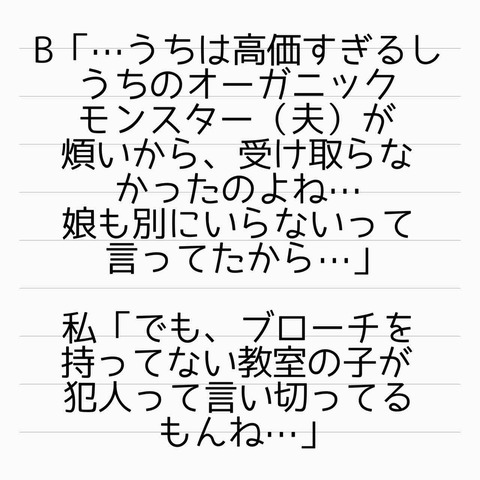 B「…うちは高価すぎるし
うちのオーガニック
モンスター（夫）が
煩いから、受け取らな
かったのよね…
娘も別にいらないって
言ってたから…」
私「でも、ブローチを
持ってない教室の子が
犯人って言い切ってる
もんね…」